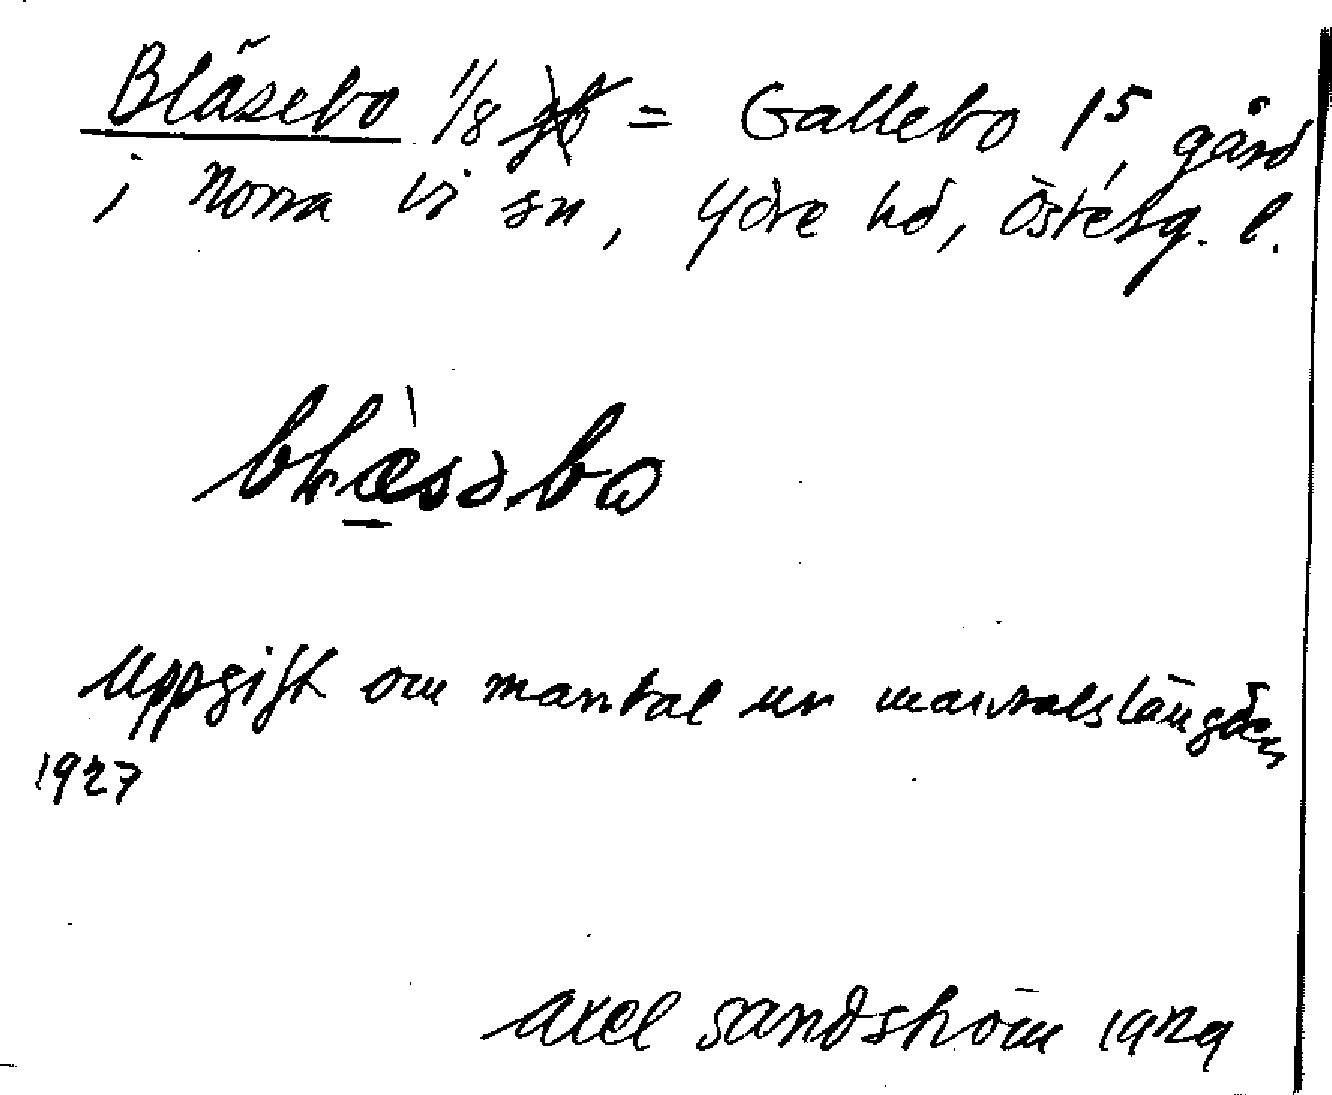 Bläsebo 1/8 = Gallebo 1⁵, gård
i Norra Vi sn, Ydre hd, Östergs. l.
Uppgift om mantal ur mantalslängden
1927
Axel Sandström 1929